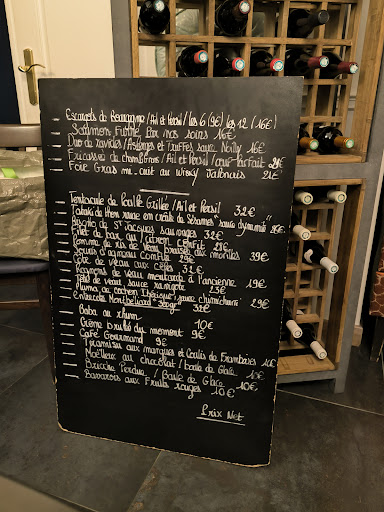 Escargots de Bourgogne / Ail et Persil / les 6 (9€) les 12 (16€)
Saumon Fumé Par nos soins 16€
Duo de ravioles / Asperges et Truffes sauce Noilly 16€
Fricassée de champignons / Ail et Persil / œuf Parfait 21€
Foie Gras mi-cuit au Wisky Japonais 21€
Tentacule de Poulpe Grillée / Ail et Persil 32€
Tataki de thon sauce en croûte de Sésames "sauce dynamite"
Risotto de St Jacques sauvages 32€
Filet de bar au citron confit
Pomme de ris de Veau braisée aux morilles 39€
Souris d'agneau confite 29€
Côte de Veau aux cèpes 32€
Rognons de veau moutarde à l'ancienne 19€
Tête de veau sauce ravigote 23€
Pluma de cochon Ibérique sauce chimichurri 29€
Entrecôte Montbéliard 32€
Baba au rhum
Crème brulée du moment 10€
Café Gourmand 9€
Tiramisu aux marrons et Coulis de Framboises
Moëlleux au chocolat / boule de Glace
Brioche Perdue / Boule de Glace 10€
Bavarois aux Fruits rouges 10€
Prix Net